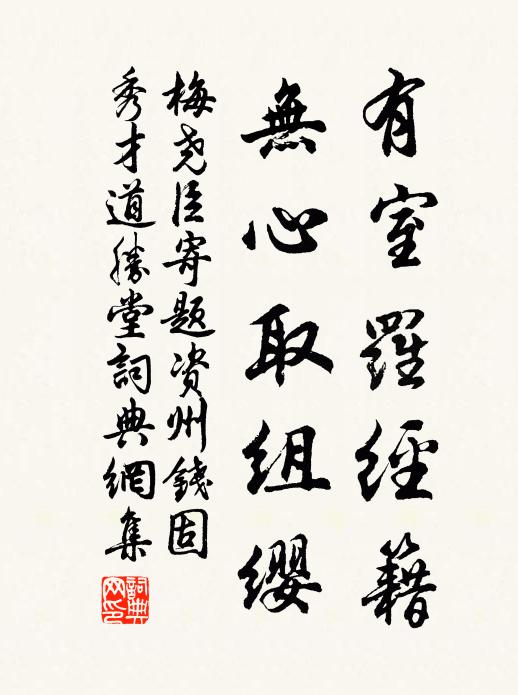 有室羅經籍
無心取組缨
梅尧臣寄题资州錢固
秀才道勝堂詞典網集
詞典网印